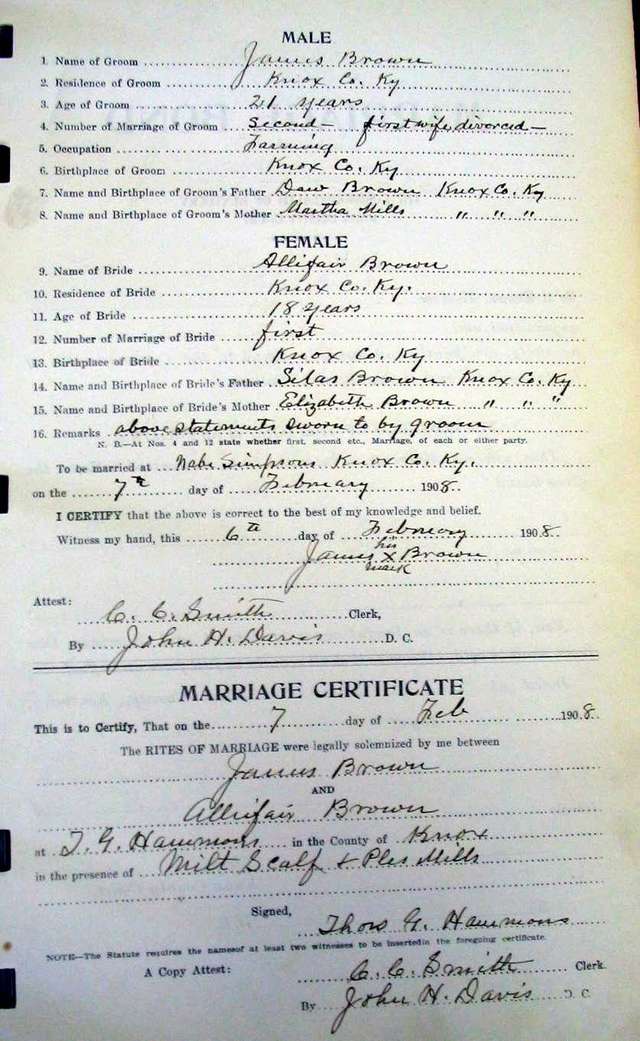 MALE
1. Name of Groom James Brown
2. Residence of Groom Knox Co. Ky
3. Age of Groom 21 years
4. Number of Marriage of Groom Second - first wife divorced -
5. Occupation Farming
6. Birthplace of Groom Knox Co. Ky
7. Name and Birthplace of Groom's Father Daw Brown Knox Co. Ky
8. Name and Birthplace of Groom's Mother Martha Mills " " "
FEMALE
9. Name of Bride Allifair Brown
10. Residence of Bride Knox Co. Ky.
11. Age of Bride 18 years
12. Number of Marriage of Bride first
13. Birthplace of Bride Knox Co. Ky
14. Name and Birthplace of Bride's Father Silas Brown Knox Co. Ky
15. Name and Birthplace of Bride's Mother Elizabeth Brown " " "
16. Remarks above statements sworn to by groom
N. B.—At Nos. 4 and 12 state whether first, second etc., Marriage, of each or either party.
To be married at Nabe Simpsons Knox Co. Ky.
on the 7th day of February 1908
I CERTIFY that the above is correct to the best of my knowledge and belief.
Witness my hand, this 6th day of February 1908
his
James x Brown
mark
Attest:
C. C. Smith Clerk,
By John H. Davis D. C.
MARRIAGE CERTIFICATE
This is to Certify, That on the 7 day of Feb 1908
The RITES OF MARRIAGE were legally solemnized by me between
James Brown
AND
Allifair Brown
at T. G. Hammons in the County of Knox
in the presence of Milt Scalf & Ples Mills
Signed,
Thos G. Hammons
NOTE—The Statute requires the namesof at least two witnesses to be insertedin the foregoing certificate.
A Copy Attest: C. C. Smith Clerk
By John H. Davis D. C.